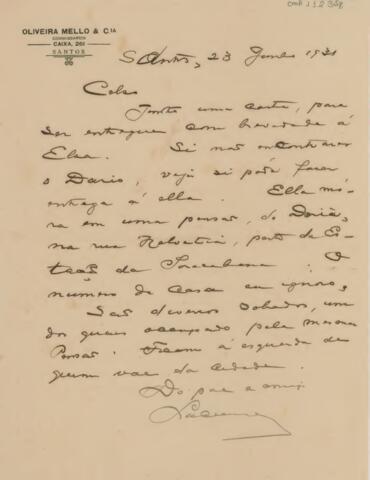 OLIVEIRA MELLO & C.IA
COMMISSARIOS
CAIXA, 261
SANTOS
Santos, 23 1931
Celso
Junto uma carta, para
ser entregue com brevidade á
Elsa. Si não encontrares
o Dario, veja si póde fazer
entrega á ella. Ella mó-
ra em uma pensão, do Doriã,
na rua Helvetia, perto da Es-
tação da Sorocabana. O
numero da casa eu ignoro,
São diversos sobados, um
dos quaes occupado pela mesma
Pensão. Ficam á esquerda de
quem vae da cidade.
Do pae e amigo